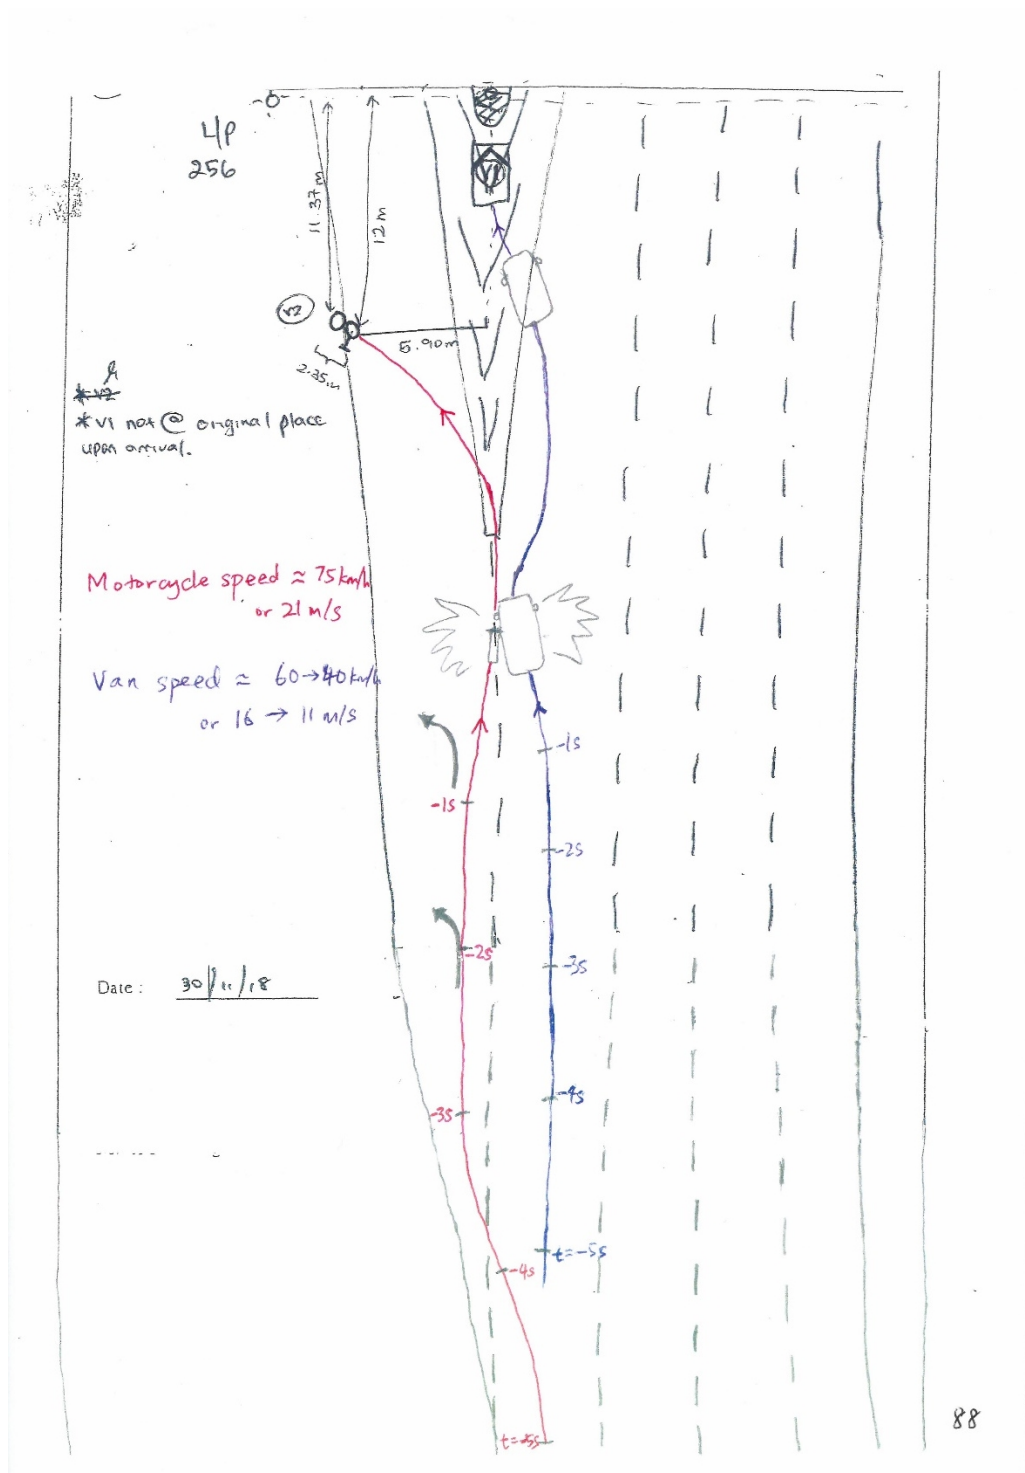 L/P
256
11.37m
12m
V1
V2
5.90m
2.35m
* V2
* V1 not @ original place
upon arrival.
Motorcycle speed ≈ 75km/h
or 21 m/s
Van speed ≈ 60→40km/h
or 16 → 11 m/s
-1s
-1s
-2s
-2s
-3s
Date : 30/11/18
-4s
-3s
t=-5s
-4s
t=-5s
88